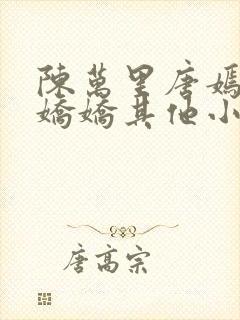 陳萬里唐嫣
嬌嬌其他小
唐高宗